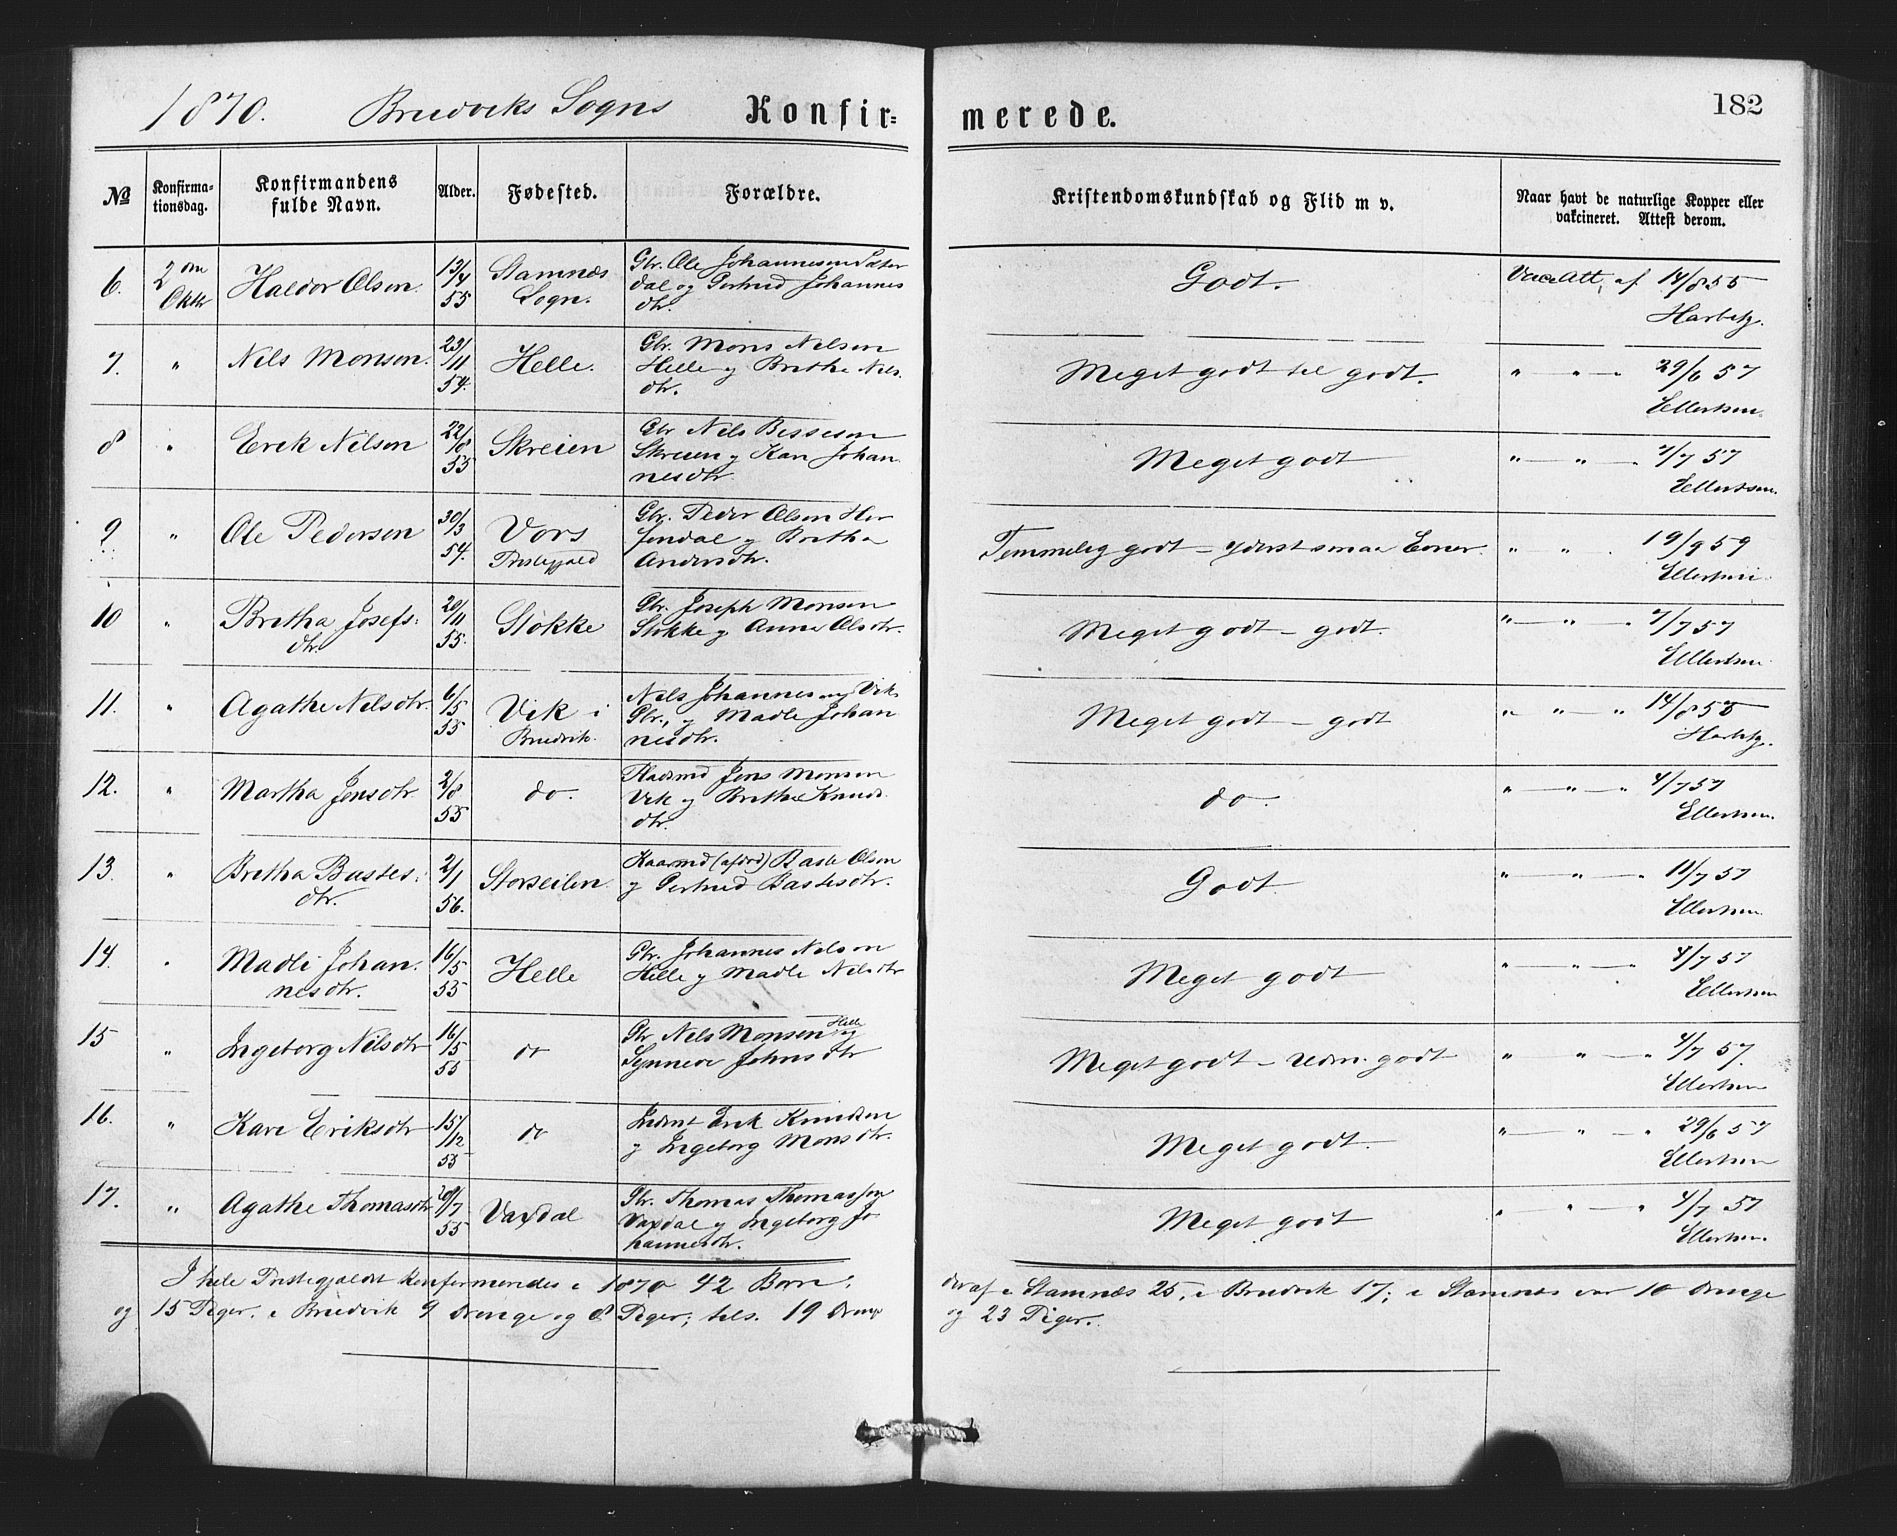 1870. Bruviks Sogns Konfir= merede. 182
No Konfirma-tionsdag. Konfirmandens fulde Navn. Alder. Fødested. Forældre. Kristendomskundskab og Flid m v. Naar havt de naturlige Kopper eller vakcineret. Attest derom.
6. 2den Oktbr Haldor Olsen. 13/4 55 Stamnæs Sogn. Gbr. Ole Johannesen Sæter
dal og Gertrud Johannes
dtr. Godt. Vacc Att. af 14/8 55
Harbitz.
7. " Nils Monsen. 23/11 54. Helle. Gbr. Mons Nilsen
Helle og Britha Nils.
dtr. Meget godt til godt. " — " — 29/6 57
Ellertsen.
8 " Erik Nilsen 22/8 55 Skreien Gbr Nils
Skreien og Kari Johan
nesdtr. Meget godt " — " — " 7/7 57
Ellertsen.
9 " Ole Pedersen 30/3 54. Vors
Prestegjæld Gbr. Peder Olsen Her
fendal og Britha
Andersdtr. Temmelig godt — yderst smaa Evner. " " . 19/9 59
Ellertsen.
10 " Britha Josefs:
dtr. 20/11 55. Stokke Gbr. Joseph Monsen
Stokke og Anna Olsdtr. Meget godt — godt. " — " — " 7/7 57
Ellertsen
11. " Agathe Nilsdtr. 6/5 55 Vik i
Bruvik. Nils Johannesen Vik
Gbr., og Madle Johan
nesdtr. Meget godt — godt " — " — " 14/8 55
Harbitz.
12. " Martha Jensdtr 2/8 55 do. Pladsmd Jens Monsen
Vik og Britha Knuds
dtr. do. " — " — " 4/7 57
Ellertsen.
13. " Britha Bastes:
dtr. 2/1 56. Storseilen. Kaarmd (afdød) Baste Olsen
og Gertrud Bastesdtr. Godt " — " — " 11/7 57
Ellertsen.
14. " Madli Johan.
nesdtr. 16/5 55 Helle Gbr. Johannes Nilsen
Helle og Madle Nilsdtr Meget godt " — " — " 4/7 57
Ellertsen
15 " Ingeborg Nilsdtr 16/5 55 do Gbr Nils Monsen Helle og
Synneve Johnsdtr Meget godt — udm. godt " " — " 4/7 57.
Ellertsen
16. " Kari Eriksdtr 15/12 55 do Inderst Erik Knudsen
og Ingeborg Monsdtr. Meget godt. " — " — " 29/6 57
Ellertsen
17. " Agathe Thomasdtr 20/7 55 Vaxdal Gbr. Thomas Thomassen
Vaxdal og Ingeborg Jo
hannesdtr. Meget godt " " — " 4/7 57
Ellertsen.
I hele Prestegjældet konfirmeredes i 1870 42 Børn, deraf i Stamnæs 25, i Bruvik 17; i Stamnæs var 10 Drenge
og 15 Piger, i Bruvik 9 Drenge og 8 Piger; tils. 19 Drenge og 23 Piger.